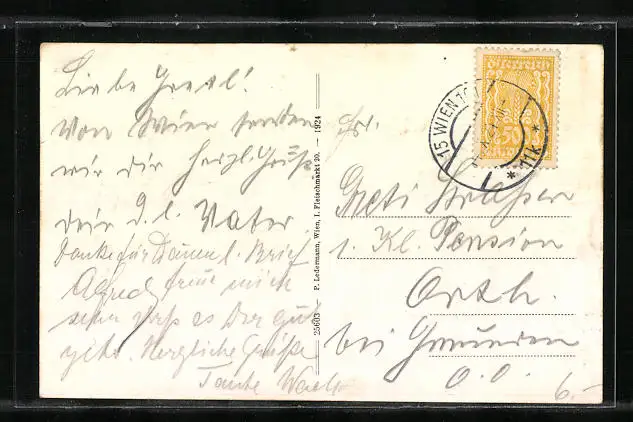 Liebe Gretl!
Von Wien senden
wir dir herzl. Grüße
dein d. l. Vater.
Danke für Deinen l. Brief
Alfred freue mich
sehr daß es Dir gut
geht. Herzliche Grüße
Tante
25603 — P. Ledermann, Wien, I. Fleischmarkt 20. — 1924
Österreich
50
15 WIEN 101
* 11k *
Frl.
Greti
Kl. Pension
Orth.
bei Gmunden
O.Ö.
6.-